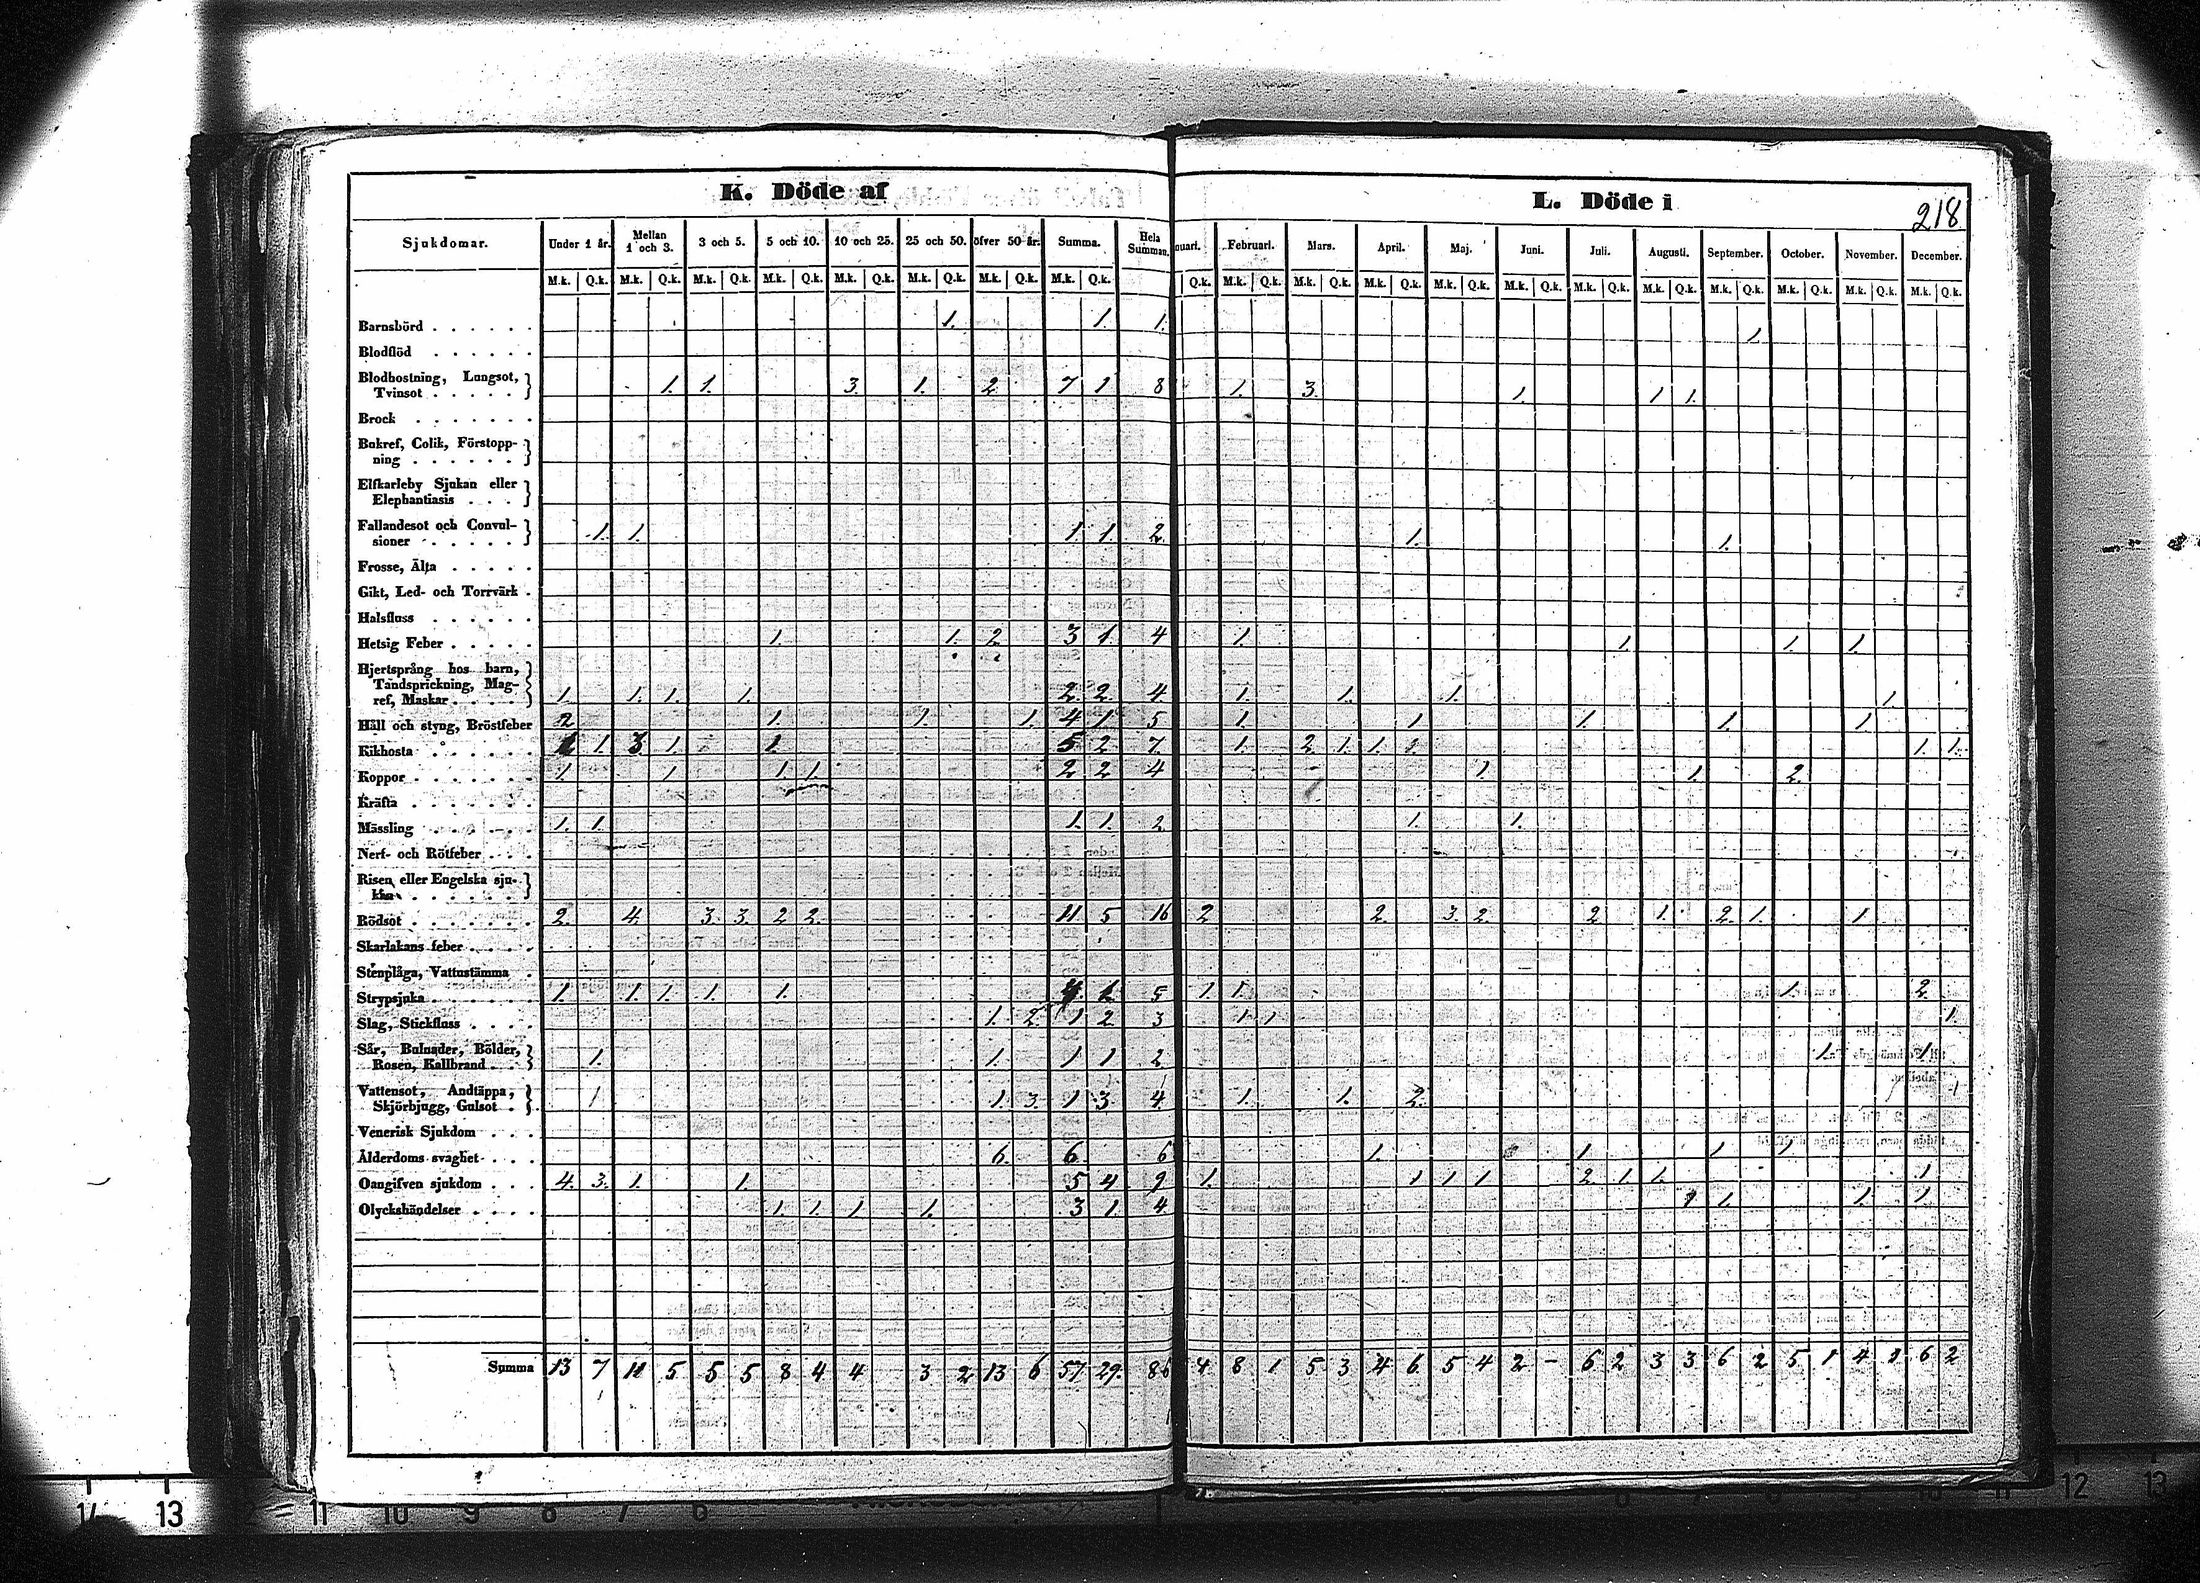 K. Döde af
L. Döde i
218.
Sjukdomar. Under 1 år. Mellan 1 och 3. 3 och 5. 5 och 10. 10 och 25. 25 och 50. öfver 50 år. Summa. Hela Summan.
nuari. Februari. Mars. April. Maj. Juni. Juli. Augusti. September. October. November. December.
M.k. Q.k. M.k. Q.k. M.k. Q.k. M.k. Q.k. M.k. Q.k. M.k. Q.k. M.k. Q.k. M.k. Q.k.
Q.k. M.k. Q.k. M.k. Q.k. M.k. Q.k. M.k. Q.k. M.k. Q.k. M.k. Q.k. M.k. Q.k. M.k. Q.k. M.k. Q.k. M.k. Q.k. M.k. Q.k.
Barnsbörd 1. 1. 1. 1.
Blodflöd
Blodhostning, Lungsot,
Tvinsot 1. 1. 3. 1. 2. 7 1 8 1. 3. 1. 1 1.
Brock
Bukref, Colik, Förstopp-
ning
Elfkarleby Sjukan eller
Elephantiasis
Fallandesot och Convul-
sioner 1. 1. 1. 1. 2. 1. 1.
Frosse, Älta
Gikt, Led- och Torrvärk
Halsfluss
Hetsig Feber 1. 1. 2. 3 1. 4 1. 1. 1. 1.
Hjertsprång hos barn,
Tandsprickning, Mag-
ref, Maskar 1. 1. 1. 1. 2 2 4. 1. 1. 1. 1.
Håll och styng, Bröstfeber 2 1. 1. 1. 4 1. 5 1. 1. 1. 1. 1.
Kikhosta 1. 3 1. 1. 5 2 7. 1. 2. 1. 1. 1. 1. 1.
Koppor 1. 1 1. 1. 2 2 4 1. 1. 2.
Kräfta
Mässling 1. 1. 1. 1. 2 1. 1.
Nerf- och Rötfeber
Risen eller Engelska sju-
kan
Rödsot 2. 4. 3. 3. 2 2. 11. 5 16 2 2. 3. 2. 2 1. 2. 1. 1.
Skarlakans feber
Stenplåga, Vattustämma
Strypsjuka 1. 1. 1. 1. 1. 4 1 5 1. 1. 1. 2.
Slag, Stickfluss 1. 2. 1 2. 3 1 1 1.
Sår, Bulnader, Bölder,
Rosen, Kallbrand 1. 1. 1 1 2. 1. 1.
Vattensot, Andtäppa,
Skjörbjugg, Gulsot 1. 3. 1 3 4. 1. 1. 2.
Venerisk Sjukdom
Ålderdoms svaghet 6. 6. 6 1. 1 1 1
Oangifven sjukdom 4. 3. 1. 1. 5 4 9 1. 1 1 1 2 1 1. 1
Olyckshändelser 1. 1. 1 1. 3 1. 4 1 1. 1. 1.
Summa 13 7 11 5 5 5 8 4 4 3 2 13 6 57. 29. 86 4. 8 1 5 3 4 6. 5 4 2 - 6 2 3 3 6 2 5 1 4 1 6 2
14 13 11 10 9 8 7 6 12 13